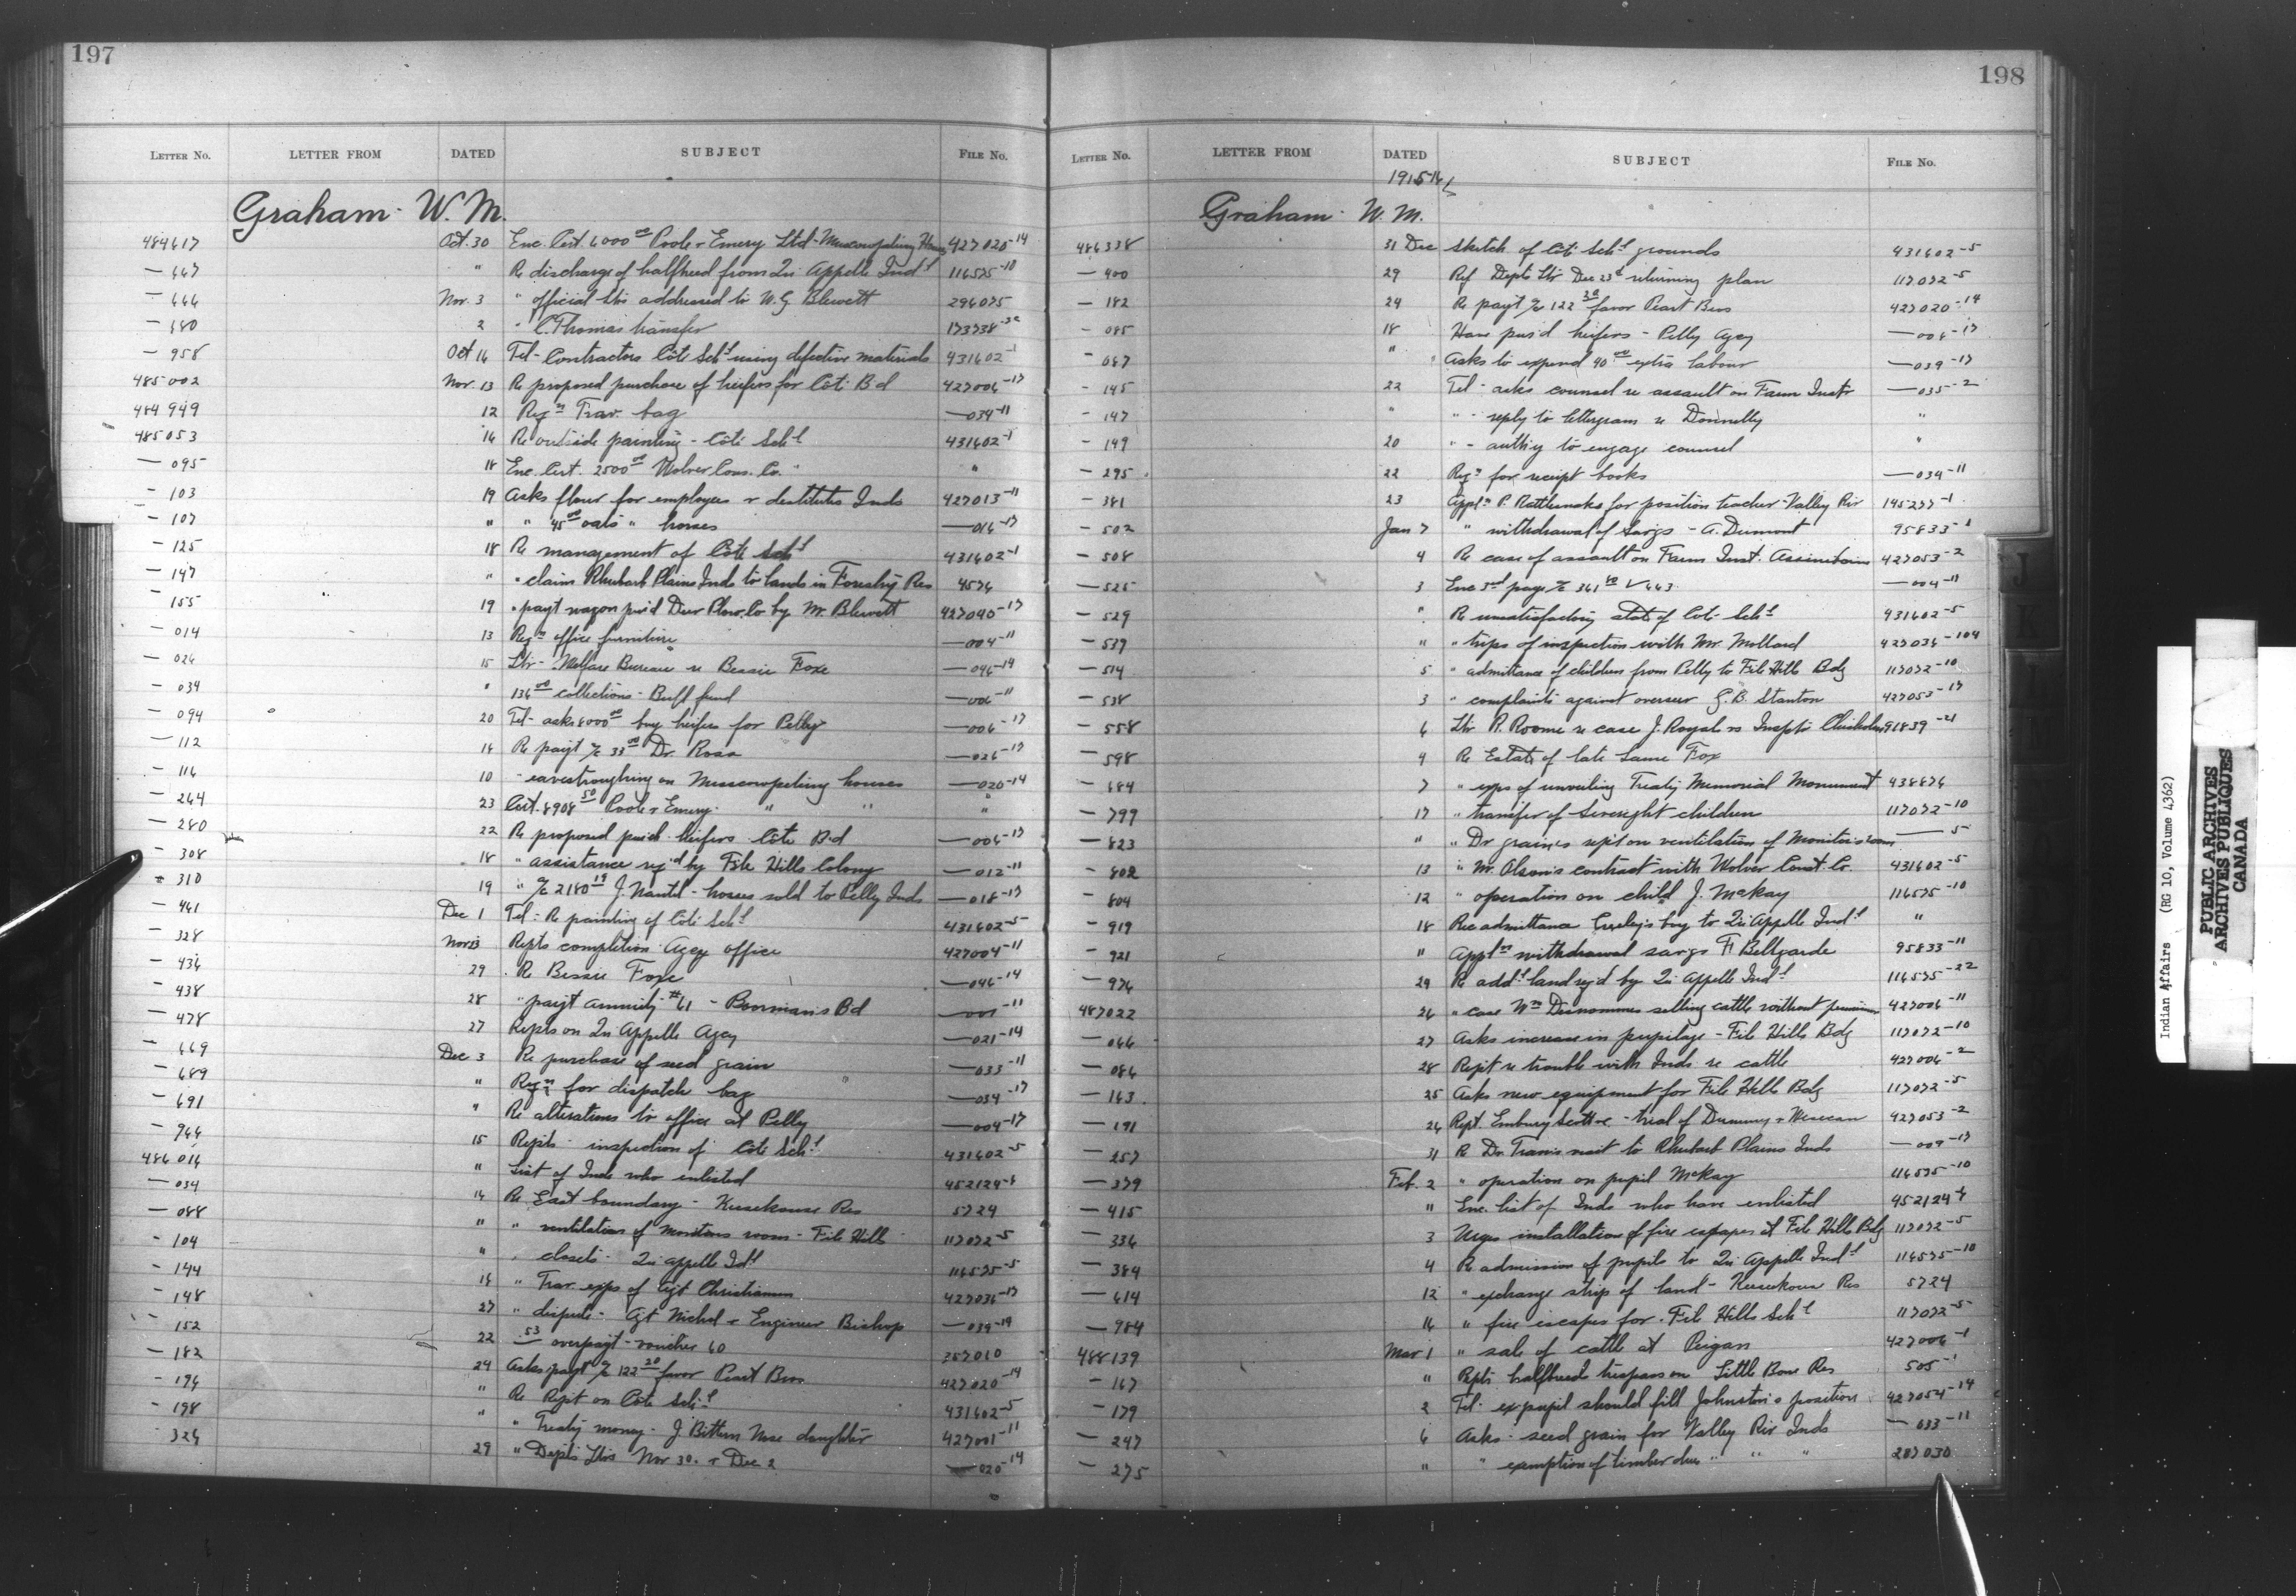 197
LETTER NO. LETTER FROM DATED SUBJECT FILE NO.
Graham W. M.
484617 Oct. 30 Enc. Cert. 6000.00 Poole & Emery Ltd - Muscowpetung 427020-14
— 667 " Re discharge of halfbreed from Qu'Appelle Ind'l 116575-10
— 666 Nov. 3 " official ltrs addressed to W.G. Blewett 296075
— 680 2 " C. Thomas transfer
— 958 Oct 16 Tel - Contractors Côté Sch'l using defective materials 431602-1
485002 Nov. 13 Re proposed purchase of heifers for Côté Bd 427006-17
484949 12 Reqn Trav. bag — 034-11
485053 16 Re outside painting - Côté Sch'l 431602-1
— 095 18 Enc. Cert. 2500.00 Wolver Cons. Co. " "
— 103 19 Asks flour for employees & destitute Inds 427013-11
— 107 " " 45.00 oats " horses — 016-17
— 125 18 Re management of Côté Sch'l 431602-1
— 147 " " claim Rhubarb Plains Inds to lands in Forestry Res 4576
— 155 19 " payt wagon pur'd Deer Plow Co by Mr. Blewett 427040-17
— 014 13 Reqn office furniture — 004-11
— 026 15 Ltr - Welfare Bureau re Bessie Foxe — 046-14
— 034 " 136.00 collections - Buff fund — 006-11
— 094 20 Tel - asks 6000.00 buy heifers for Pelly — 006-17
— 112 14 Re payt a/c 33.00 Dr. Ross — 026-17
— 116 10 " eavestroughing on Muscowpetung houses — 020-14
— 264 23 Cert. 8908.50 Poole & Emery " " "
— 280 22 Re proposed purch. heifers Côté Bd — 006-17
— 308 18 " assistance req'd by File Hills Colony — 012-11
— 310 19 " a/c 2180.19 J. Nantel - horses sold to Pelly Inds — 018-17
— 441 Dec 1 Tel - Re painting of Côté Sch'l 431602-5
— 328 Nov 13 Repts completion Agcy office 427004-11
— 436 29 Re Bessie Foxe — 046-14
— 438 28 " payt annuity #61 - Poorman's Bd — 001-11
— 478 27 Repts on Qu'Appelle Agcy — 021-14
— 669 Dec 3 Re purchase of seed grain — 033-11
— 689 " Reqn for dispatch bag " — 034-17
— 691 " Re alterations to office at Pelly — 004-17
— 966 15 Repts - inspection of Côté Sch'l 431602-5
486016 " List of Inds who enlisted
— 034 14 Re East boundary - Keesekouse Res 5724
— 088 " " ventilation of monitors room - File Hills 117072-5
— 104 " " closets - Qu'Appelle Ind'l 116575-5
— 144 18 " Trav. exps of Agt Christianson 427036-17
— 148 27 " dispute - Agt Nichol & Engineer Bishop — 039-14
— 152 22 .53 overpayt - voucher 60 257010
— 182 24 Asks payt a/c 122.20 favor Peart Bros 427020-14
— 194 " Re Rept on Côté Sch'l 431602-5
— 198 " " Treaty money - J. Bittern Nose daughter 427001-11
326 29 " Depts ltrs Nov 30. & Dec 2 — 020-14
198
LETTER NO. LETTER FROM DATED SUBJECT FILE NO.
1915-16
Graham W. M.
486338 31 Dec Sketch of Côté Sch'l grounds 431602-5
— 400 29 Ref Depts ltr Dec 23d returning plan 117072-5
— 182 24 Re payt a/c 122.20 favor Peart Bros 427020-14
— 085 18 Have pur'd heifers - Pelly Agcy — 006-17
— 087 " Asks to expend 90.00 extra labour — 039-17
— 145 22 Tel - asks counsel re assault on Farm Instr — 035-2
— 147 " " - reply to lettergram re Donnelly "
— 149 20 " - authy to engage counsel "
— 295 22 Reqn for receipt books — 034-11
— 381 23 Appln P. Rattlesnake for position teacher - Valley Riv 145277-1
— 502 Jan 7 " withdrawal of savgs - A. Dumont 95833-1
— 508 4 Re case of assault on Farm Inst. Assiniboine 427053-2
— 525 3 Enc 3rd page a/c 361.60 V 443 — 004-11
— 529 " Re unsatisfactory state of Côté Sch'l 431602-5
— 537 " " trips of inspection with Mr. Mollard 427036-104
— 514 5 " admittance of children from Pelly to File Hills Bdg 117072-10
— 538 3 " complaints against overseer G.B. Stanton 427053-17
— 558 6 Ltr R. Roome re case J. Royal vs Inspr Chisholm 91839-21
— 598 4 Re Estate of late Same Fox
— 684 7 " exps of unveiling Treaty Memorial Monument 438876
— 799 17 " transfer of Sevenight children 117072-10
— 823 " " Dr graine's rept on ventilation of Monitor's room — 5
— 802 13 " Mr. Olson's contract with Wolver Const. Co. 431602-5
— 804 12 " operation on child J. McKay 116575-10
— 919 18 Rec admittance boy to Qu'Appelle Ind'l "
— 921 " Appln withdrawal savgs F. Bellegarde 95833-11
— 976 29 Re add'l land req'd by Qu'Appelle Ind'l 116575-22
487022 26 " case Wm Desnommes selling cattle without permission 427006-11
— 066 27 Asks increase in pupilage - File Hills Bdg 117072-10
— 086 28 Rept re trouble with Inds re cattle 427006-2
— 163 25 Asks new equipment for File Hills Bdg 117072-5
— 191 26 Rept. Embury Scott re - trial of Dummy & 427053-2
— 257 31 Re Dr. Travis visit to Rhubarb Plains Inds — 009-17
— 379 Feb. 2 " operation on pupil McKay 116575-10
— 415 " Enc. list of Inds who have enlisted
— 336 3 Urges installation of fire escapes at File Hills Bdg 117072-5
— 384 4 Re admission of pupils to Qu'Appelle Ind'l 116575-10
— 614 12 " exchange strip of land - Keesekouse Res 5724
— 984 16 " fire escapes for File Hills Sch'l 117072-5
488139 Mar 1 " sale of cattle at Peigan 427006-1
— 167 " Repts halfbreed trespass on Little Bone Res 505-1
— 179 2 Tel - ex pupil should fill Johnston's position 427054-14
— 247 6 Asks - seed grain for Valley Riv Inds — 033-11
— 275 " " exemption of timber dues " " " 287030
Indian Affairs (RG 10, Volume 4362)
PUBLIC ARCHIVES
ARCHIVES PUBLIQUES
CANADA
J